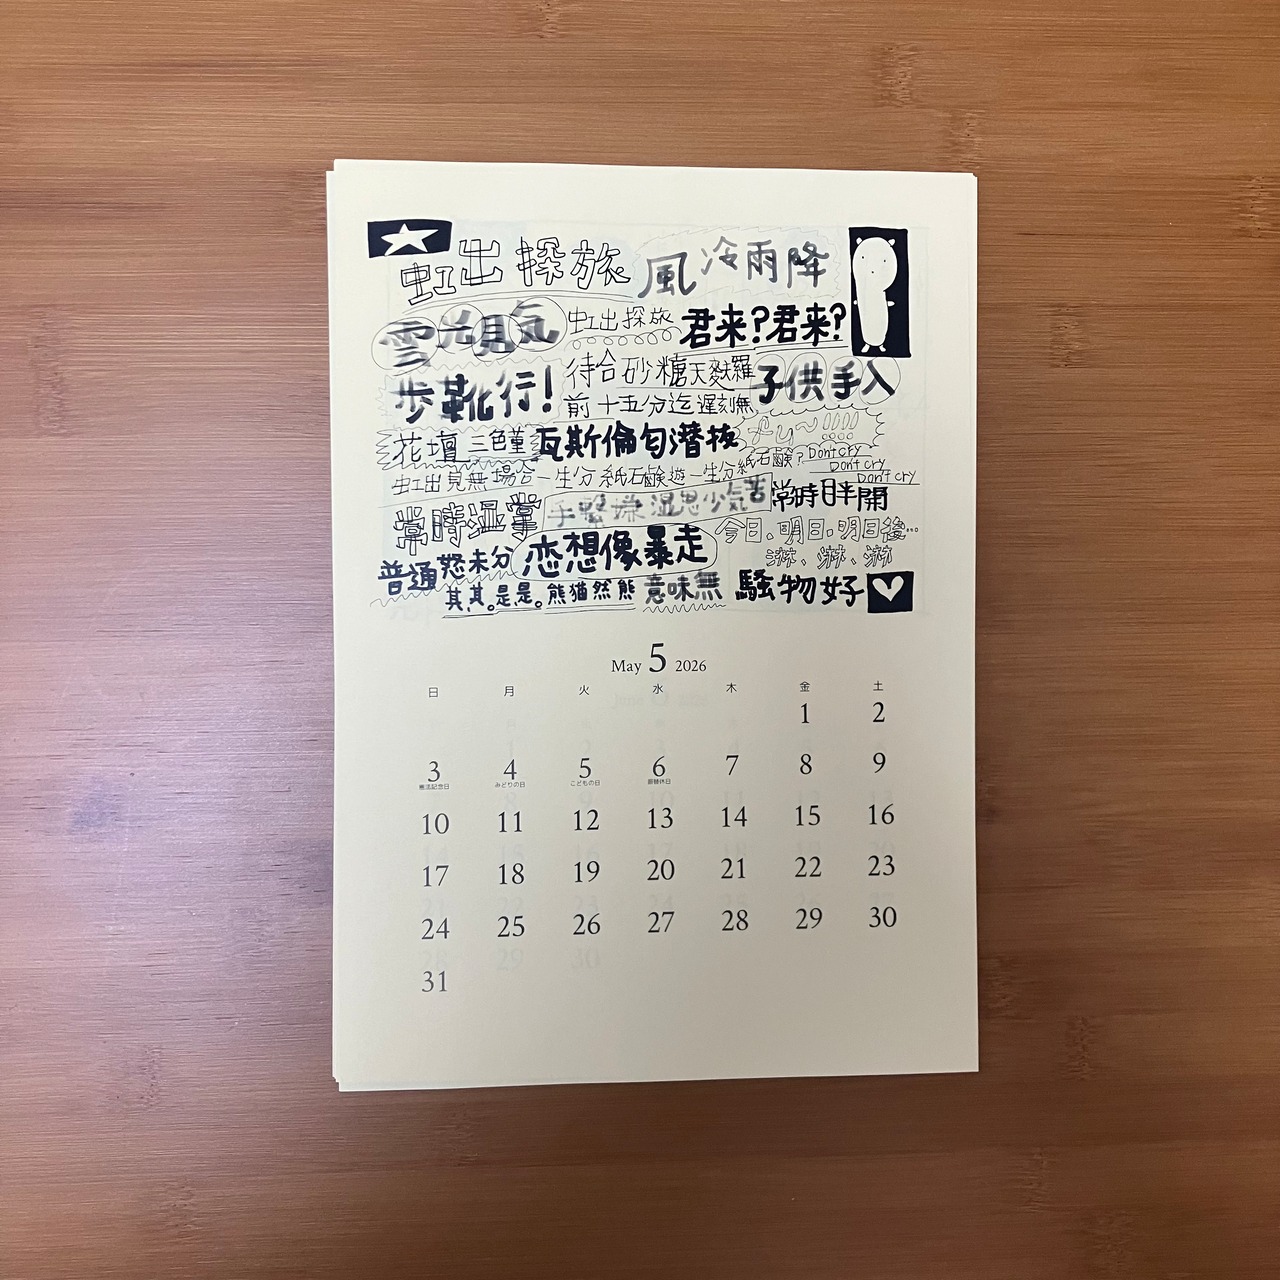 虹出探旅 風冷雨降
雲光見気 虹出探旅 君来?君来?
歩靴行! 待合砂糖天麩羅 子供手入
前十五分迄遅刻無
花壇三色菫 瓦斯倫匂潜抜
紙石鹸? Don't cry
Don't cry
Don't cry
虹出見無場合一生分紙石鹸遊一生分
常時温掌 手繋嫌湿思少気苦 常時目半開
今日、明日、明日後…
普通怒未分 恋想像暴走 淋、淋、淋
其、其。是、是。熊猫然熊 意味無 騒物好
May 5 2026
日 月 火 水 木 金 土
1 2
3 4 5 6 7 8 9
憲法記念日 みどりの日 こどもの日 振替休日
10 11 12 13 14 15 16
17 18 19 20 21 22 23
24 25 26 27 28 29 30
31